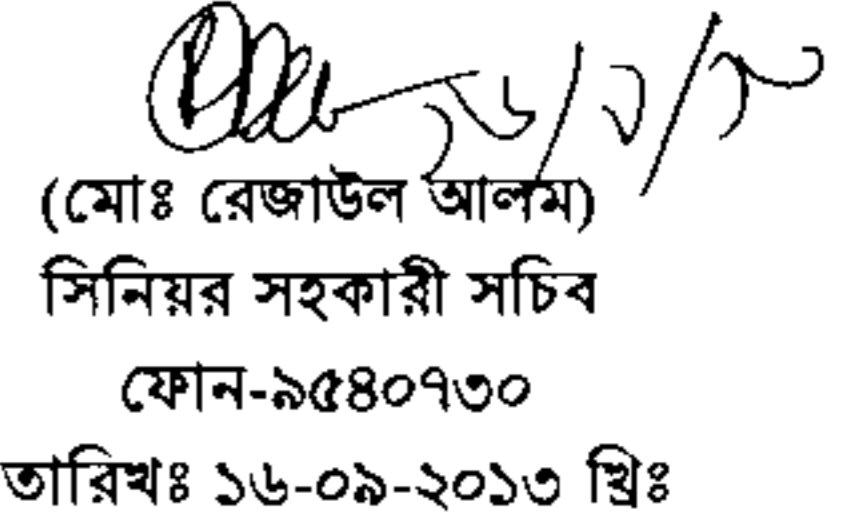 (মোঃ রেজাউল আলম)
সিনিয়র সহকারী সচিব
ফোন-৯৫৪০৭৩০
তারিখঃ ১৬-০৯-২০১৩ খ্রিঃ